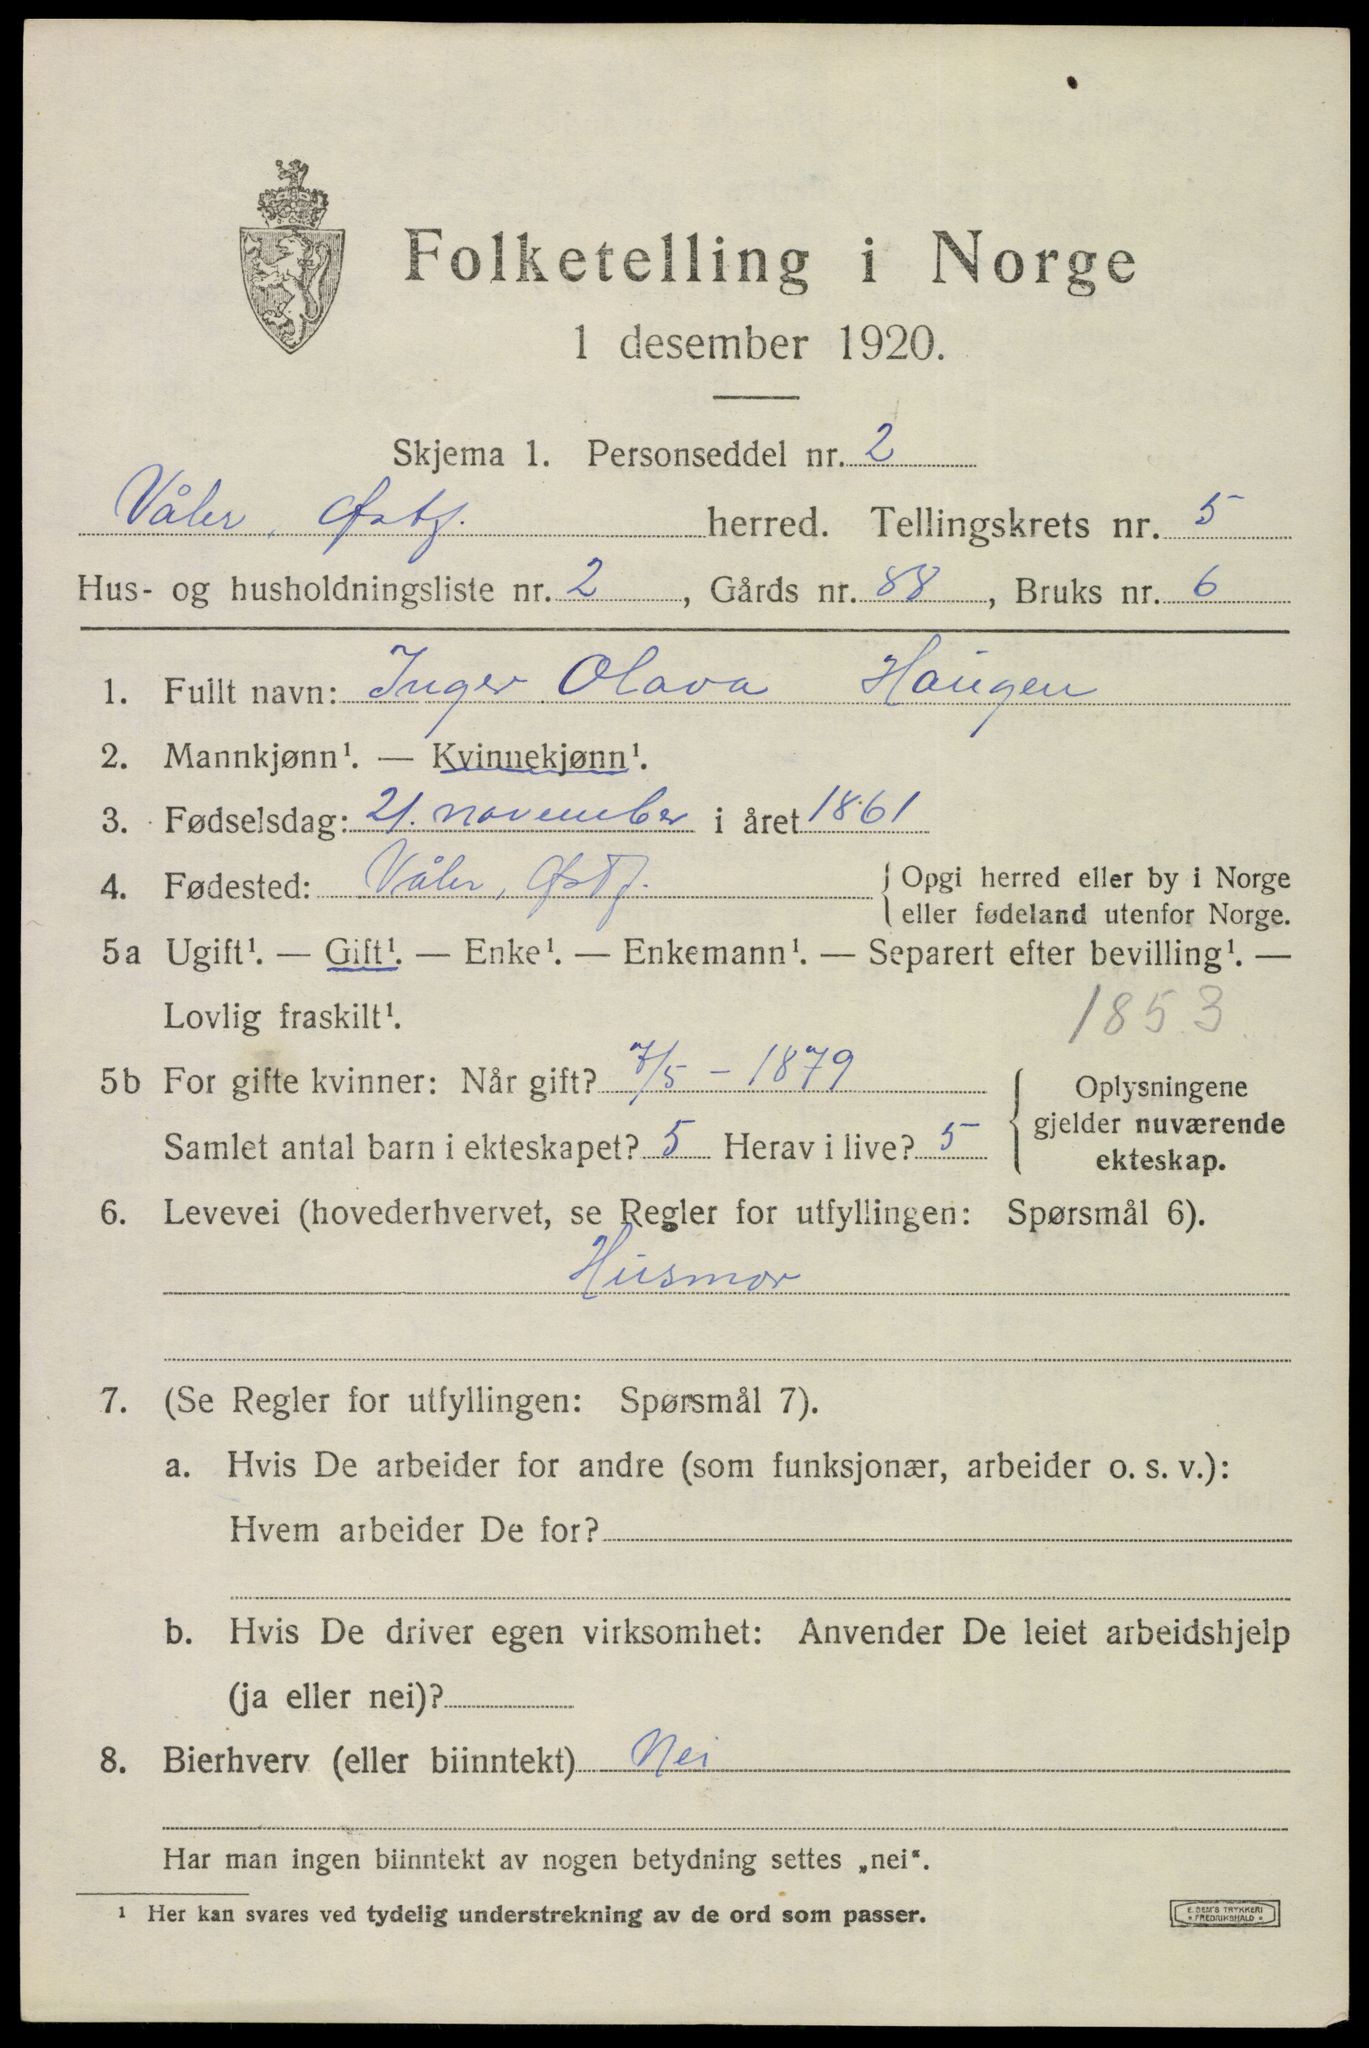 Folketelling i Norge
1 desember 1920.
Skjema 1. Personseddel nr. 2
Våler, Østf. herred. Tellingskrets nr. 5
Hus- og husholdningsliste nr. 2, Gårds nr. 88, Bruks nr. 6
1. Fullt navn: Inger Olava Haugen
2. Mannkjønn¹. — Kvinnekjønn¹.
3. Fødselsdag: 21. november i året 1861
4. Fødested: Våler, Østf. { Opgi herred eller by i Norge
eller fødeland utenfor Norge.
5a Ugift¹. — Gift¹. — Enke¹. — Enkemann¹. — Separert efter bevilling¹. —
Lovlig fraskilt¹. 1853
5b For gifte kvinner: Når gift? 7/5 - 1879
Samlet antal barn i ekteskapet? 5 Herav i live? 5
Oplysningene
gjelder nuværende
ekteskap.
6. Levevei (hovederhvervet, se Regler for utfyllingen: Spørsmål 6).
Husmor
7. (Se Regler for utfyllingen: Spørsmål 7).
a. Hvis De arbeider for andre (som funksjonær, arbeider o. s. v.):
Hvem arbeider De for?
b. Hvis De driver egen virksomhet: Anvender De leiet arbeidshjelp
(ja eller nei)?
8. Bierhverv (eller biinntekt) Nei
Har man ingen biinntekt av nogen betydning settes „nei“.
¹ Her kan svares ved tydelig understrekning av de ord som passer.
E. DEM'S TRYKKERI
• FREDRIKSHALD •